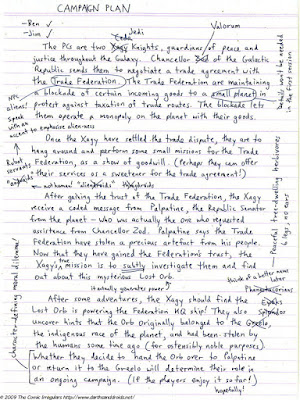 CAMPAIGN PLAN
- Ben ✓
- Jim ✓
Jedi
Valorum
The PCs are two Xagy Knights, guardians of peace and
justice throughout the Galaxy. Chancellor Zod of the Galactic
Republic sends them to negotiate a trade agreement with
the Trade Federation. The Trade Federation are maintaining
a blockade of certain incoming goods to a small planet in
protest against taxation of trade routes. The blockade lets
them operate a monopoly on the planet with their goods.
Once the Xagy have settled the trade dispute, they are to
hang around and perform some small missions for the Trade
Federation, as a show of goodwill. (Perhaps they can offer
their services as a sweetener for the trade agreement!)
After gaining the trust of the Trade Federation, the Xagy
receive a coded message from Palpatine, the Republic Senator
from the planet - who was actually the one who requested
assistance from Chancellor Zod. Palpatine says the Trade
Federation have stolen a precious artefact from his people.
Now that they have gained the Federation's trust, the
Xagy's true mission is to subtly investigate them and find
out about this mysterious Lost Orb.
It actually generates power
think of a better name later
After some adventures, the Xagy should find the
Lost Orb is powering the Federation HQ ship! They also
uncover hints that the Orb originally belonged to the Graelo,
the indigenous race of the planet, and had been stolen by
the humans some time ago (for ostensibly noble purposes).
Whether they decide to hand the Orb over to Palpatine
or return it to the Graelo will determine their role in
an ongoing campaign. (If the players enjoy it so far!)
hopefully!
NPC aliens! Speak with an accent to emphasise alienness
Robot servants
not human!
Character-defining moral dilemma!
Should not be needed in the first session
Peaceful tree-dwelling herbivores
6 legs no ears
© 2009 The Comic Irregulars http://www.darthsanddroids.net/